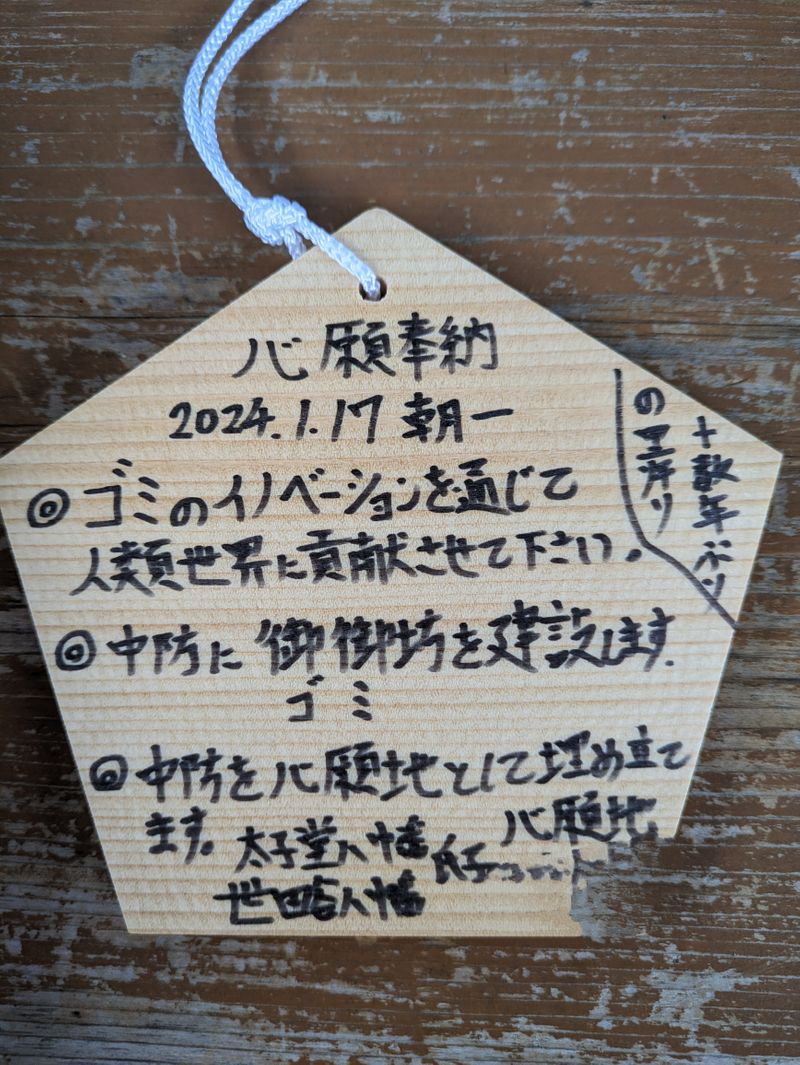 心願奉納
2024.1.17 朝一
◎ ゴミのイノベーションを通じて
人類世界に貢献させて下さい。
◎ 中防に御御坊を建設します。
ゴミ
◎ 中防を心願地として埋め立て
ます。
心願地
太子堂八幡
氏子
世田谷八幡
十数年ぶり
の里